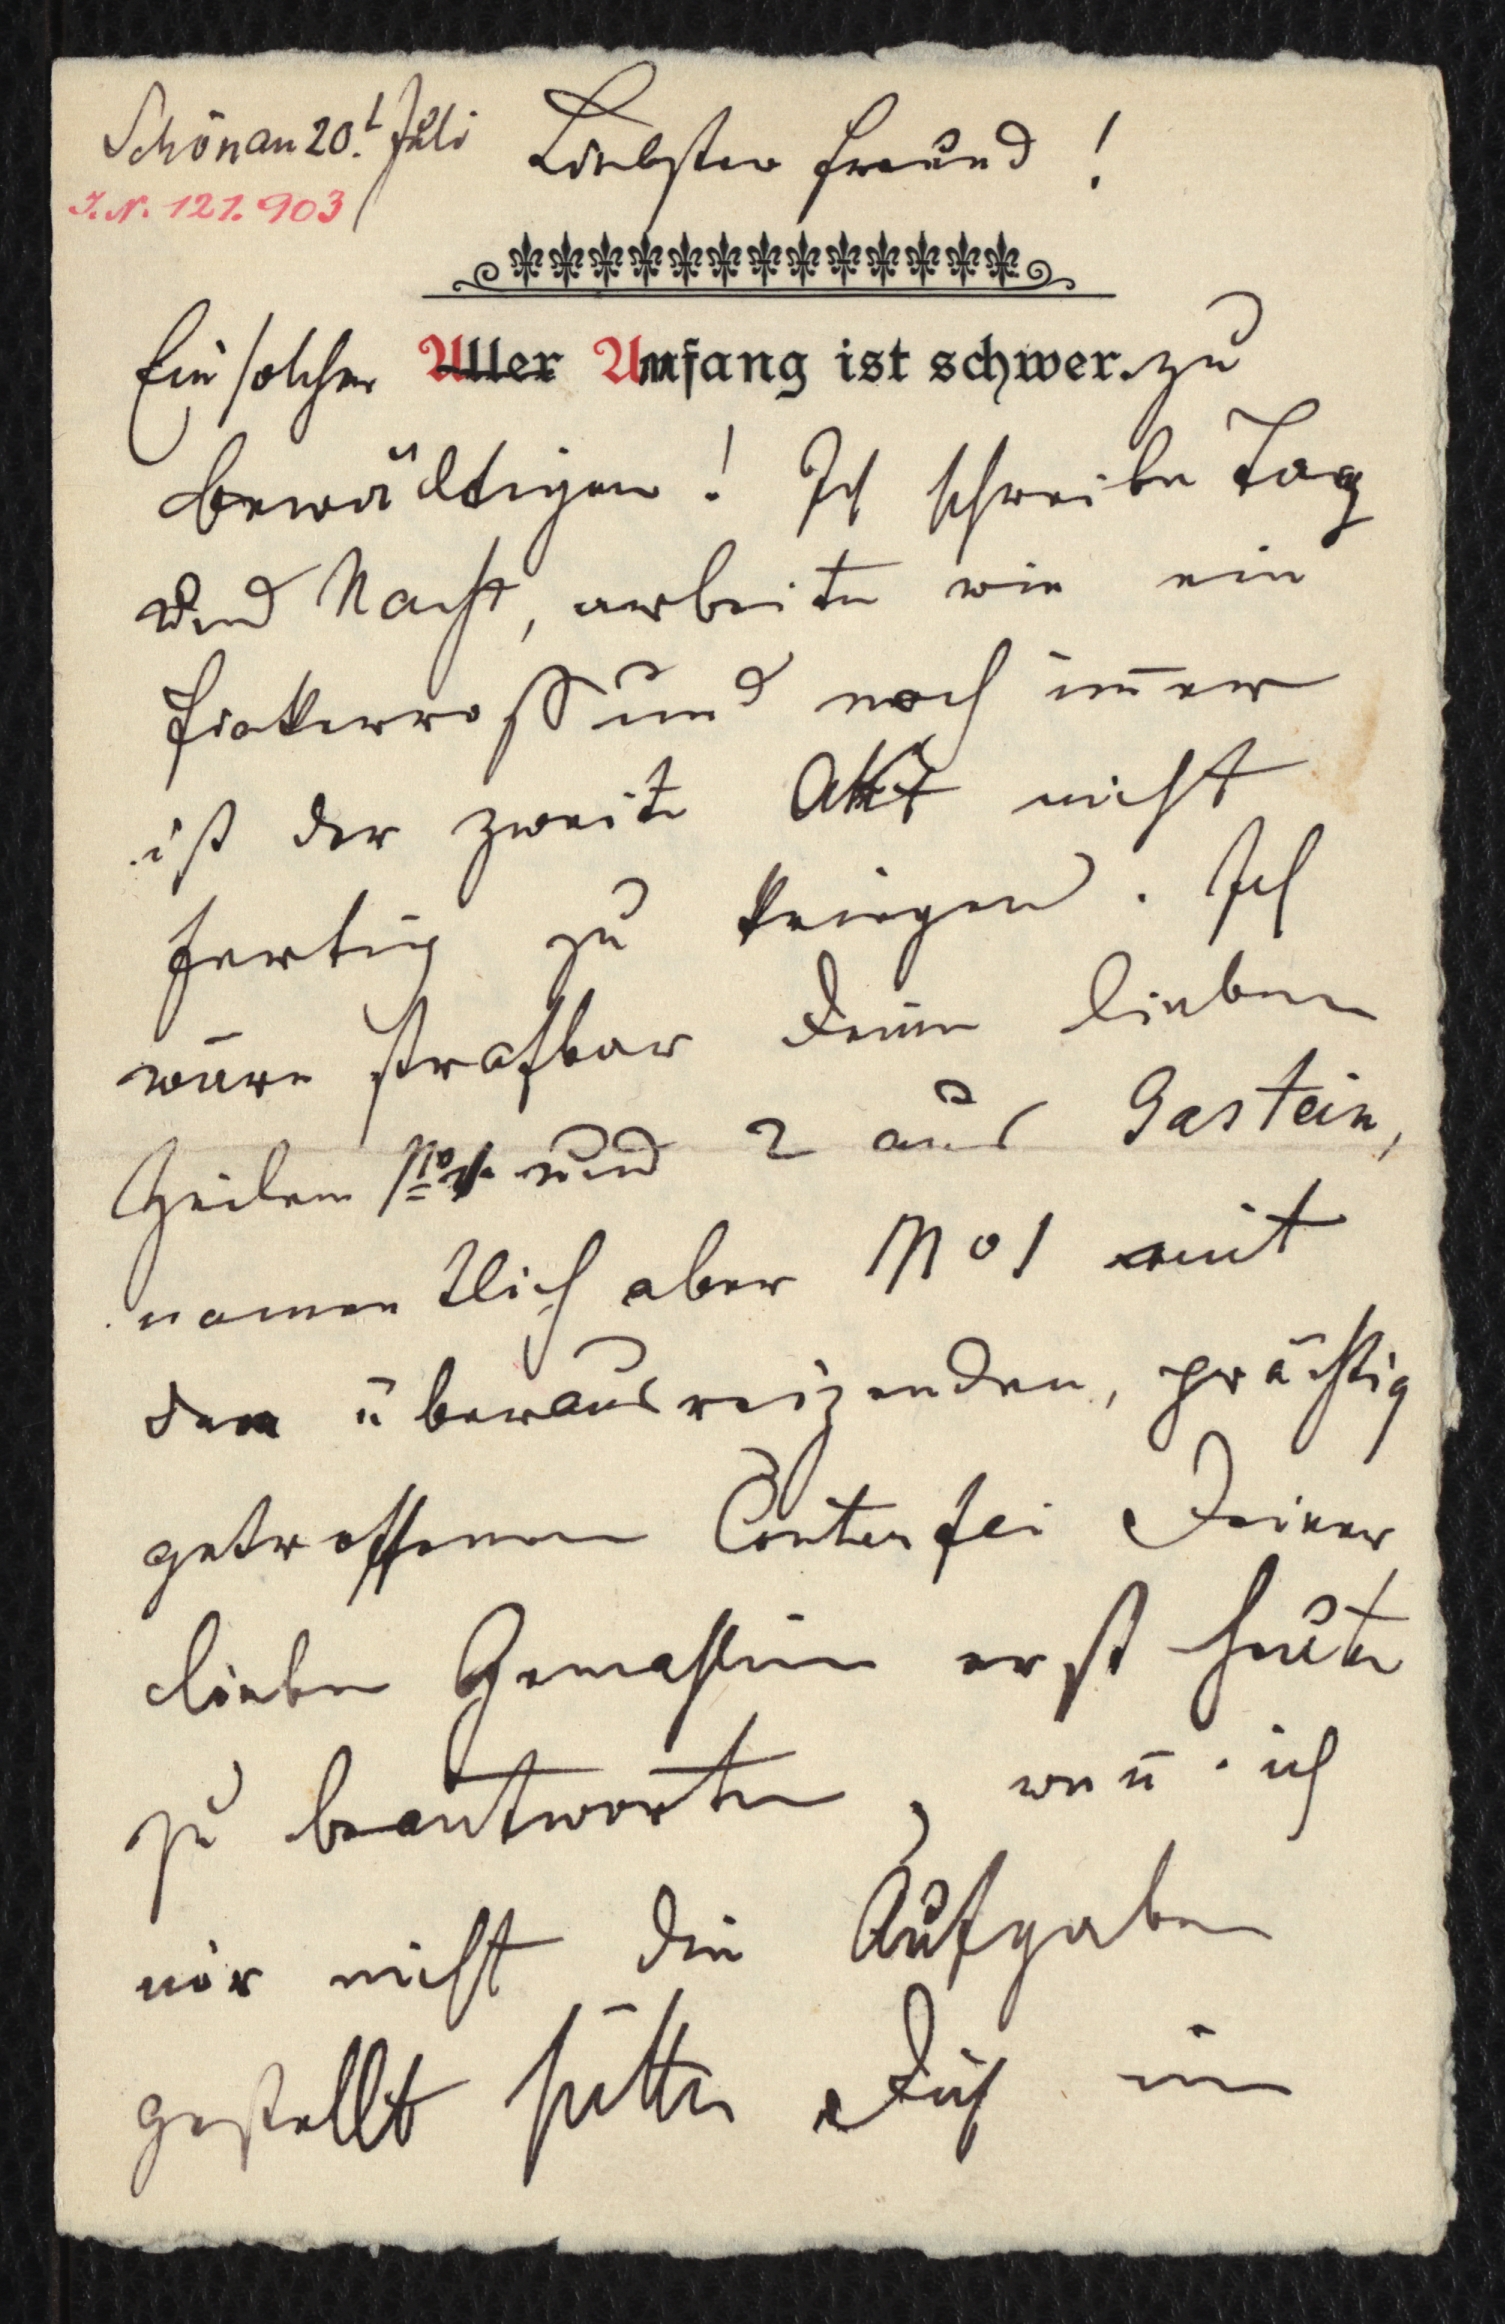 Schönau 20.t Juli
Liebster Freund!
J.N. 121.903
Ein solcher Aller Umfang ist schwer. zu
bewältigen! Ich schreibe Tag
und Nacht, arbeite wie ein
Fiakerross und noch im̄er
ist der zweite Akt nicht
fertig zu kriegen. Ich
wäre strafbar Deine lieben
Zeilen und 2 aus Gastein,
namentlich aber No 1 mit
dem überausreizenden, prächtig
getroffenen Conterfei Deiner
lieben Gemahlin erst heute
zu beantworten, wen̄ ich
mir nicht die Aufgabe
gestellt hätte Dich im